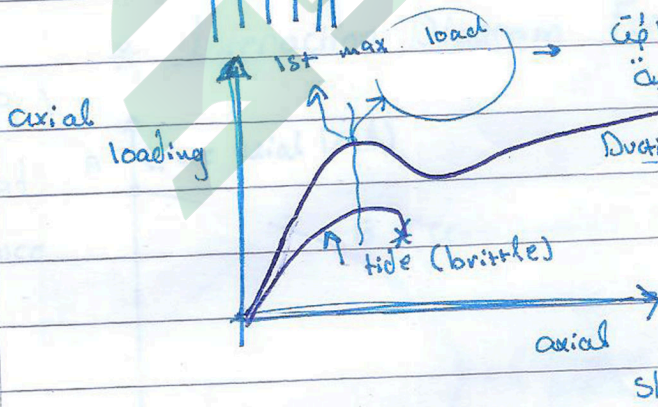 1st max. load
axial
loading
Ducti
tide (brittle)
axial